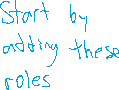 Start by
adding these
roles